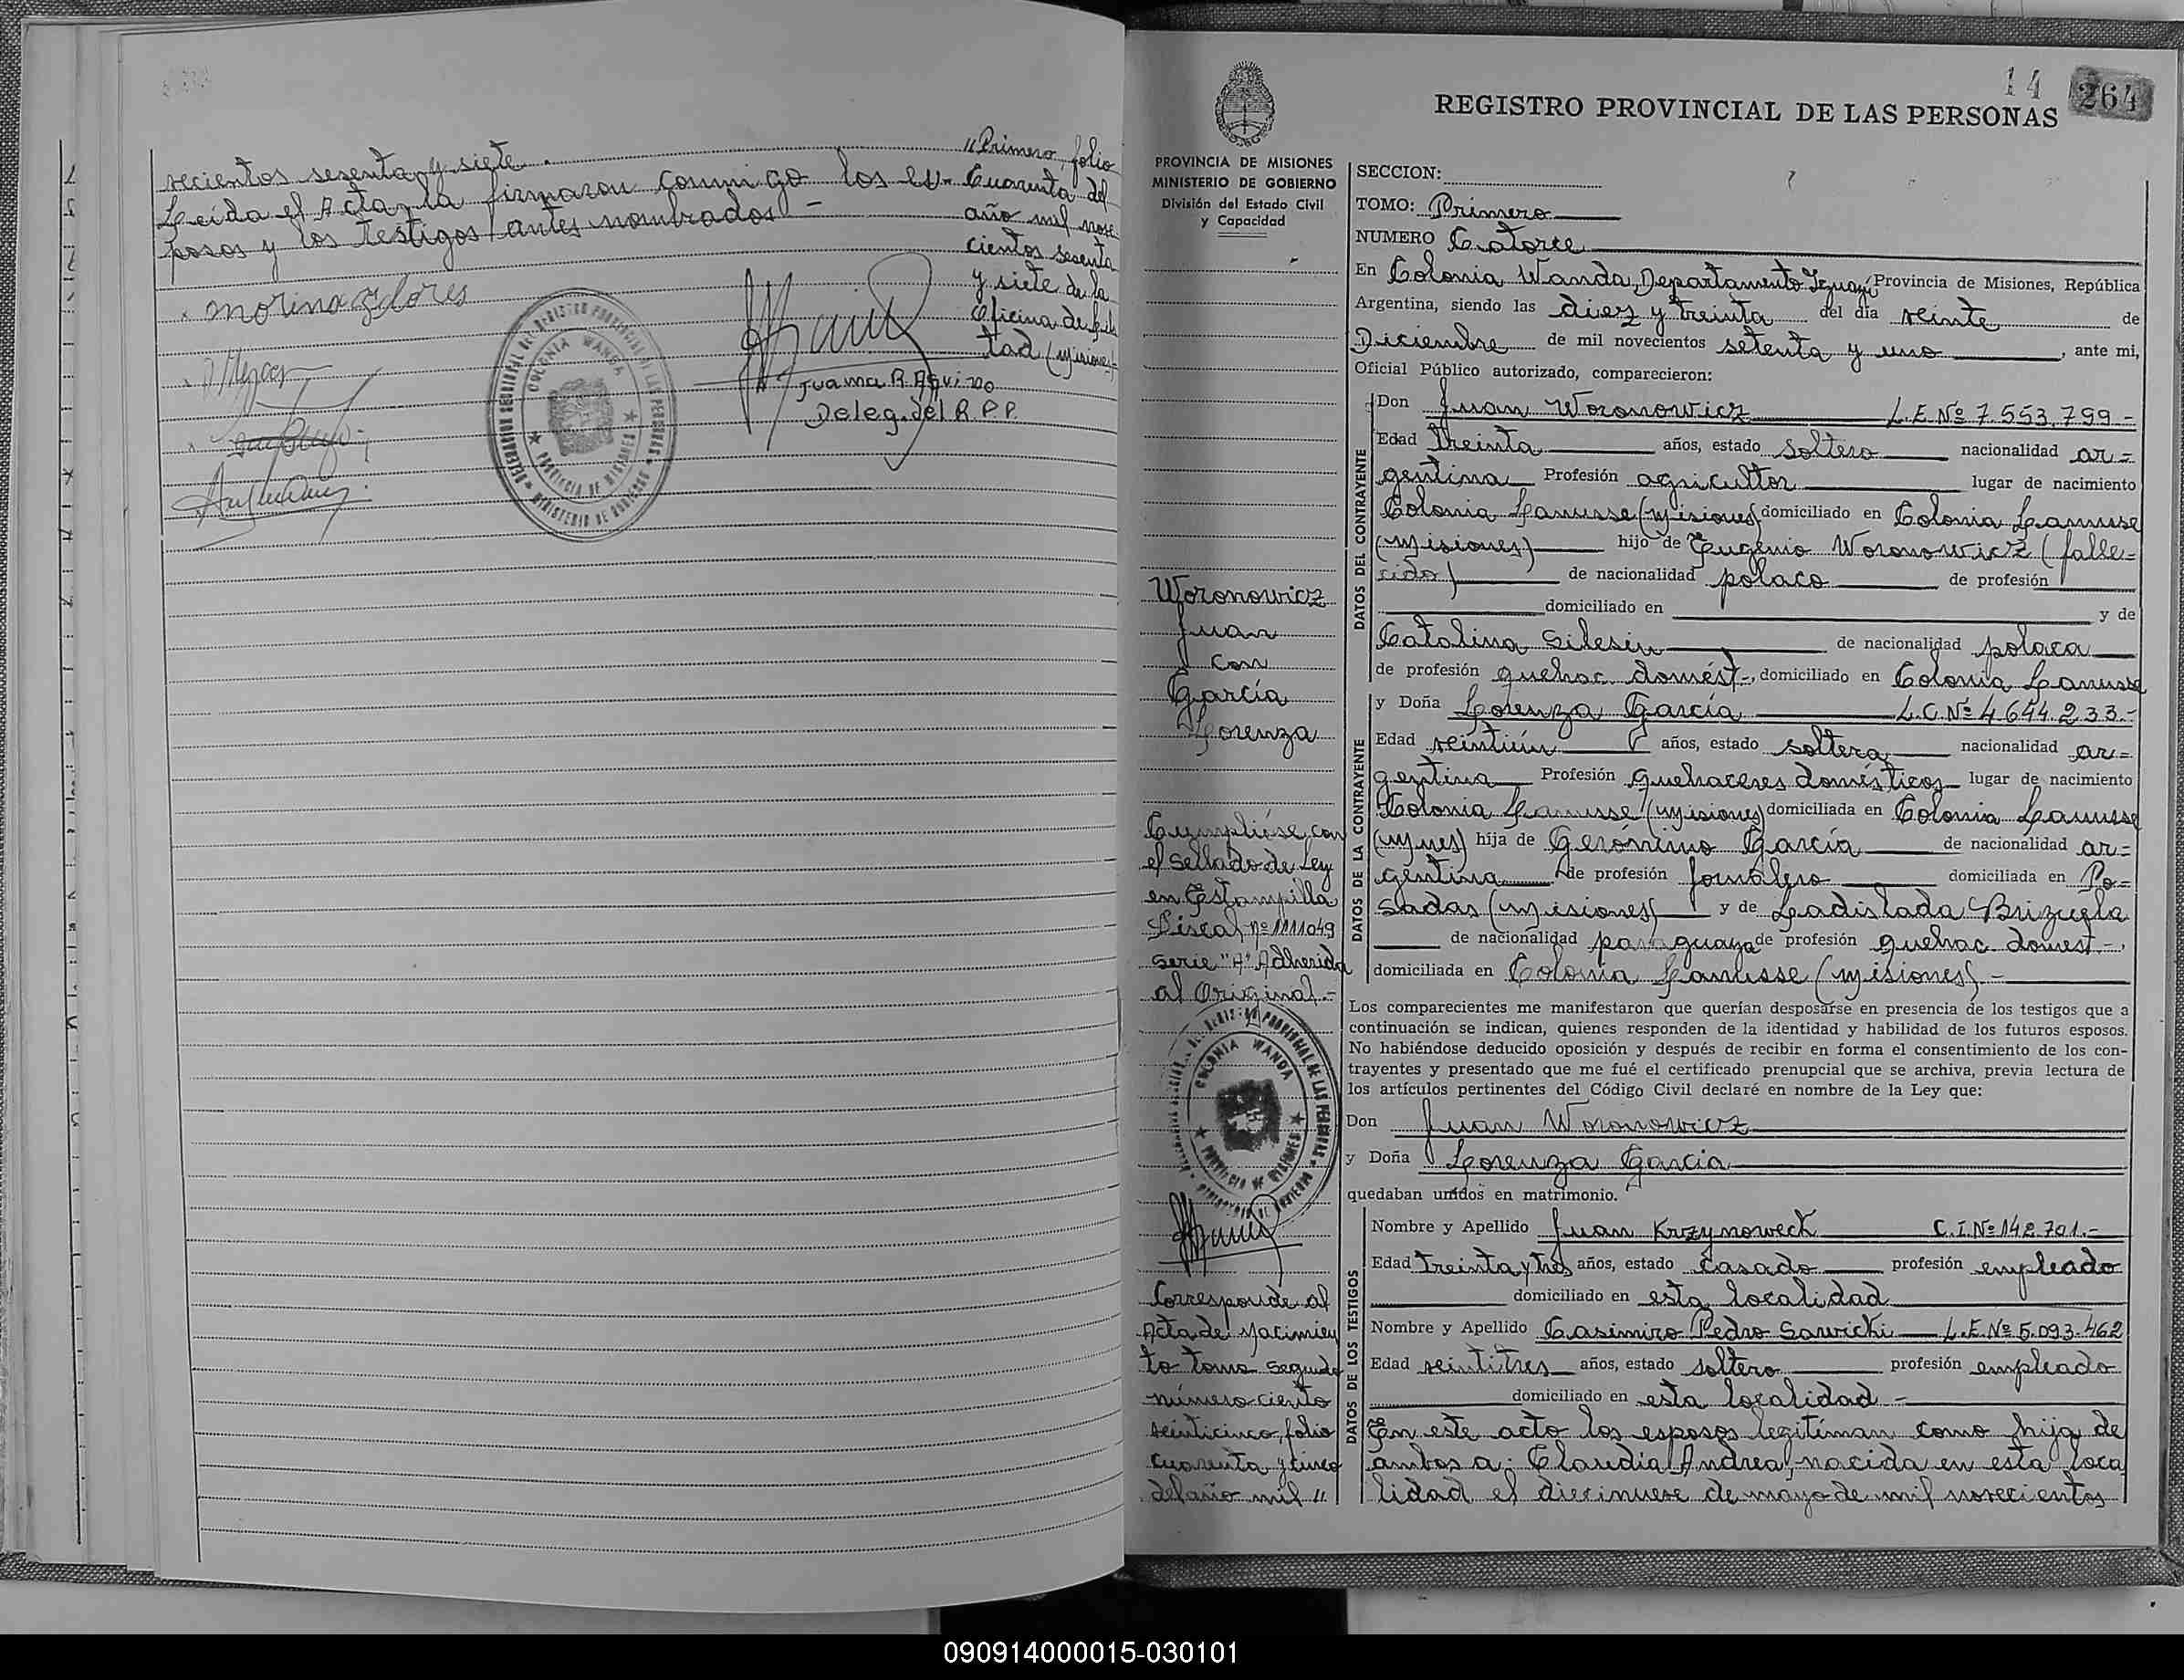 recientos sesenta y siete.
Leída el Acta, la firmaron conmigo los es-
posos y los testigos antes nombrados -
"Primero, folio
Cuarenta del
año mil nove
cientos sesenta
y siete de la
Oficina de
tad (Misiones)-
Juana R. Aquino
Deleg. del R.P.P.
COLONIA WANDA
PROVINCIA DE MISIONES
14
264
REGISTRO PROVINCIAL DE LAS PERSONAS
PROVINCIA DE MISIONES
MINISTERIO DE GOBIERNO
División del Estado Civil
y Capacidad
Woronowicz
Juan
con
García
Lorenza
Cumplióse con
el sellado de Ley
en Estampilla
Fiscal nº 1111049
serie "A" Adherida
al Original.-
COLONIA WANDA
PROVINCIA DE MISIONES
Corresponde al
Acta de Nacimien
to tomo segundo
número ciento
veinticinco, folio
cuarenta y cinco
del año mil "
SECCION:
TOMO: Primero
NUMERO Catorce
En Colonia Wanda, Departamento Iguazú Provincia de Misiones, República
Argentina, siendo las diez y treinta del día veinte de
Diciembre de mil novecientos setenta y uno, ante mi,
Oficial Público autorizado, comparecieron:
DATOS DEL CONTRAYENTE
Don Juan Woronowicz L.E.Nº 7.553.799-
Edad treinta años, estado soltero nacionalidad ar=
gentina Profesión agricultor lugar de nacimiento
Colonia Lanusse (Misiones) domiciliado en Colonia Lanusse
(Misiones) hijo de Eugenio Woronowicz (falle=
cido) de nacionalidad polaco de profesión
domiciliado en y de
Catalina Silesin de nacionalidad polaca
de profesión quehac. domést-, domiciliado en Colonia Lanusse
DATOS DE LA CONTRAYENTE
y Doña Lorenza García L.C.Nº 4.644.233.-
Edad veintiún años, estado soltera nacionalidad ar=
gentina Profesión quehaceres domésticos lugar de nacimiento
Colonia Lanusse (Misiones) domiciliada en Colonia Lanusse
(Mnes) hija de Gerónimo García de nacionalidad ar=
gentina de profesión jornalero domiciliada en Po=
sadas (Misiones) y de Ladislada Brizuela
de nacionalidad paraguaya de profesión quehac. domest-,
domiciliada en Colonia Lanusse (Misiones).-
Los comparecientes me manifestaron que querían desposarse en presencia de los testigos que a
continuación se indican, quienes responden de la identidad y habilidad de los futuros esposos.
No habiéndose deducido oposición y después de recibir en forma el consentimiento de los con-
trayentes y presentado que me fué el certificado prenupcial que se archiva, previa lectura de
los artículos pertinentes del Código Civil declaré en nombre de la Ley que:
Don Juan Woronowicz
y Doña Lorenza García
quedaban unidos en matrimonio.
DATOS DE LOS TESTIGOS
Nombre y Apellido Juan Krzynoweck C.I.Nº 142.701.-
Edad treinta y tres años, estado casado profesión empleado
domiciliado en esta localidad
Nombre y Apellido Casimiro Pedro Sawicki L.E.Nº 5.093.462
Edad veintitres años, estado soltero profesión empleado
domiciliado en esta localidad -
En este acto los esposos legitiman como hija de
ambos a: Claudia Andrea, nacida en esta loca
lidad el diecinueve de mayo de mil novecientos
090914000015-030101